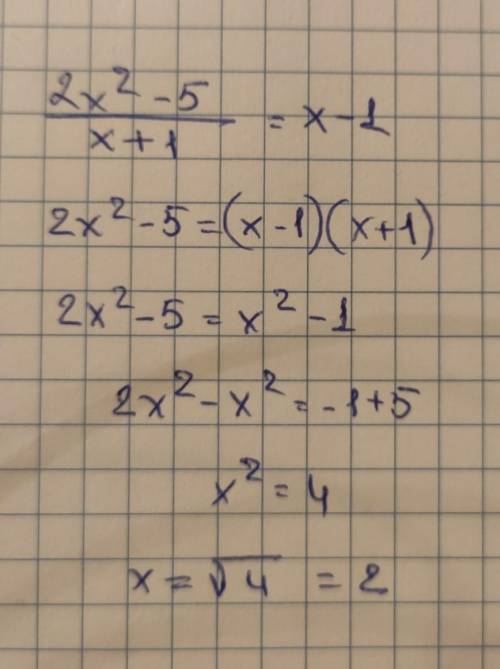 (2x² - 5)/(x + 1) = x - 1
2x² - 5 = (x - 1)(x + 1)
2x² - 5 = x² - 1
2x² - x² = -1 + 5
x² = 4
x = √4 = 2